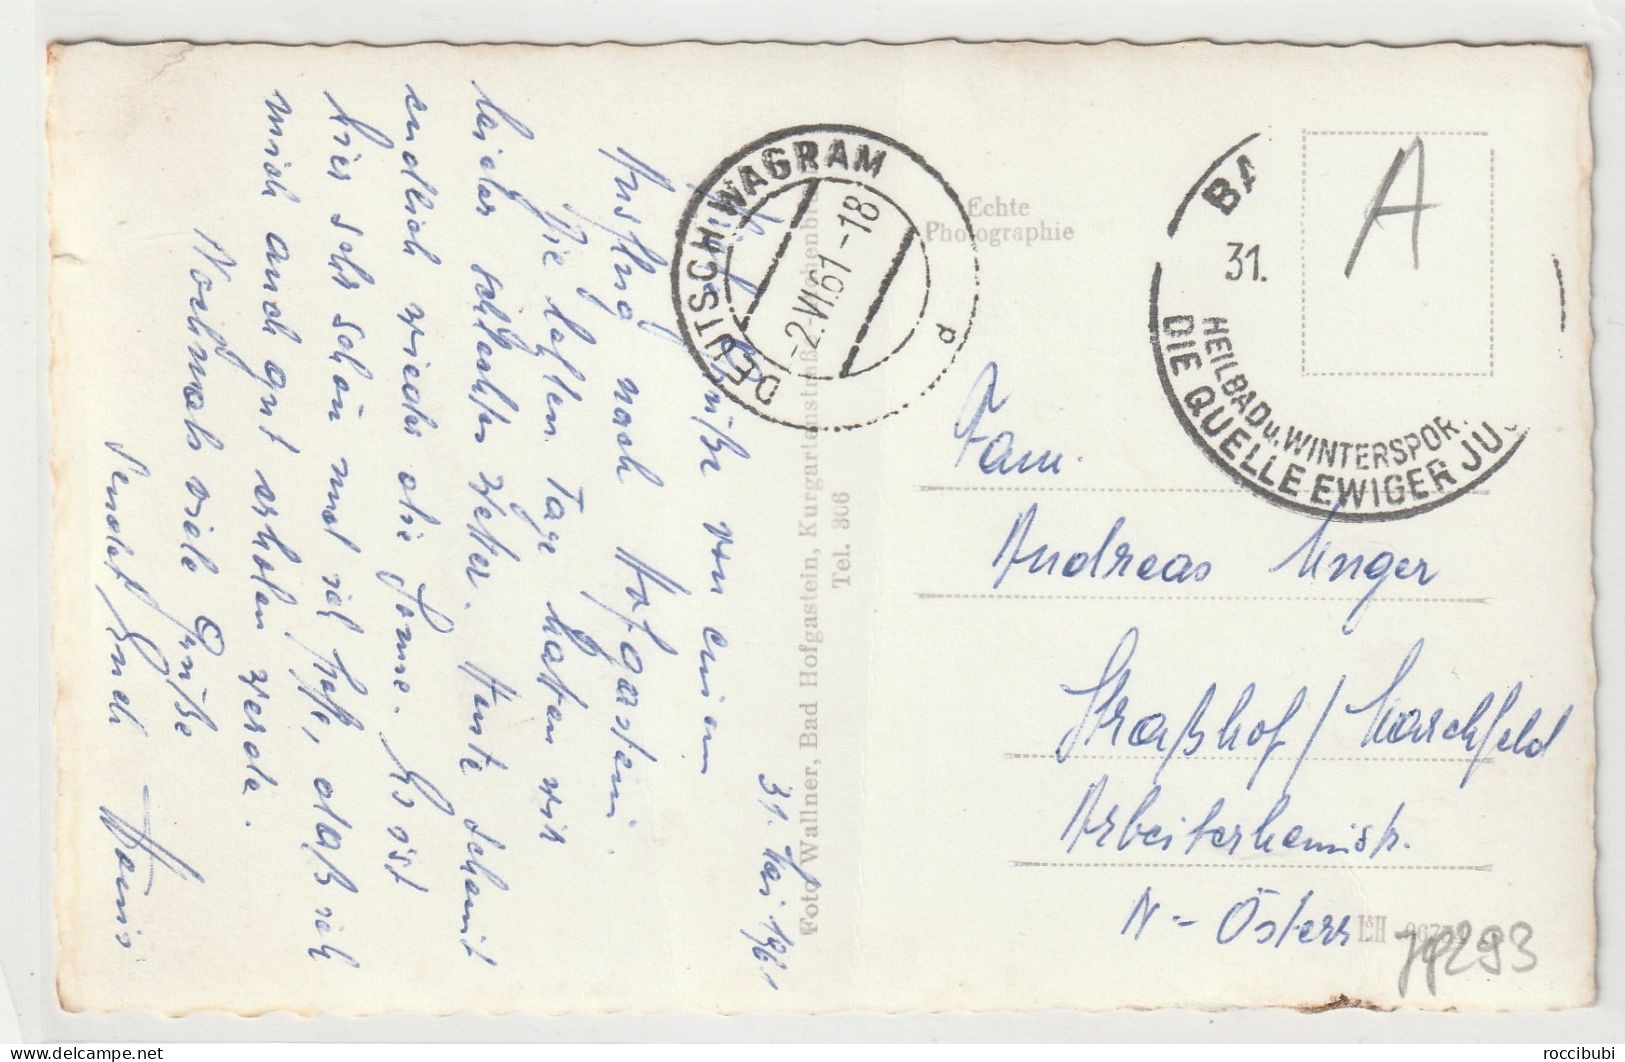 31. Mai 1961
Grüße von einem
Ausflug nach Hofgastein.
Die letzten Tage hatten wir
leider schlechtes Wetter. Heute scheint
endlich wieder die Sonne. Es ist
hier sehr schön und ich hoffe, daß ich
mich auch gut erholen werde.
Nochmals viele Grüße
sendet Euch
DEUTSCH WAGRAM
-2.VI.61-18
d
Foto Wallner, Bad Hofgastein, Kurgartenstraße
Tel. 306
Echte
Photographie
BA
31.
HEILBAD u. WINTERSPOR
DIE QUELLE EWIGER JU
A
Fam.
Andreas Unger
Straßhof / Marchfeld
Arbeiterheimstr.
N-Österr
L&H
roccibubi